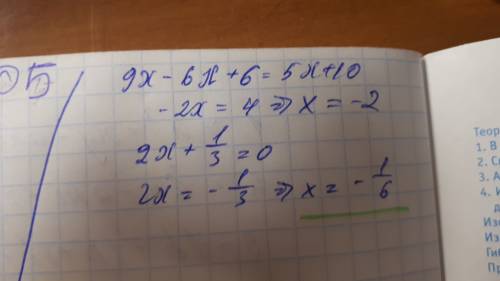 5
9x - 6x + 6 = 5x + 10
-2x = 4 ⇒ x = -2
2x + 1/3 = 0
2x = - 1/3 ⇒ x = - 1/6
Теор
1. В
2. С
3. А
4.
Изо
Из
Гиб
Пр